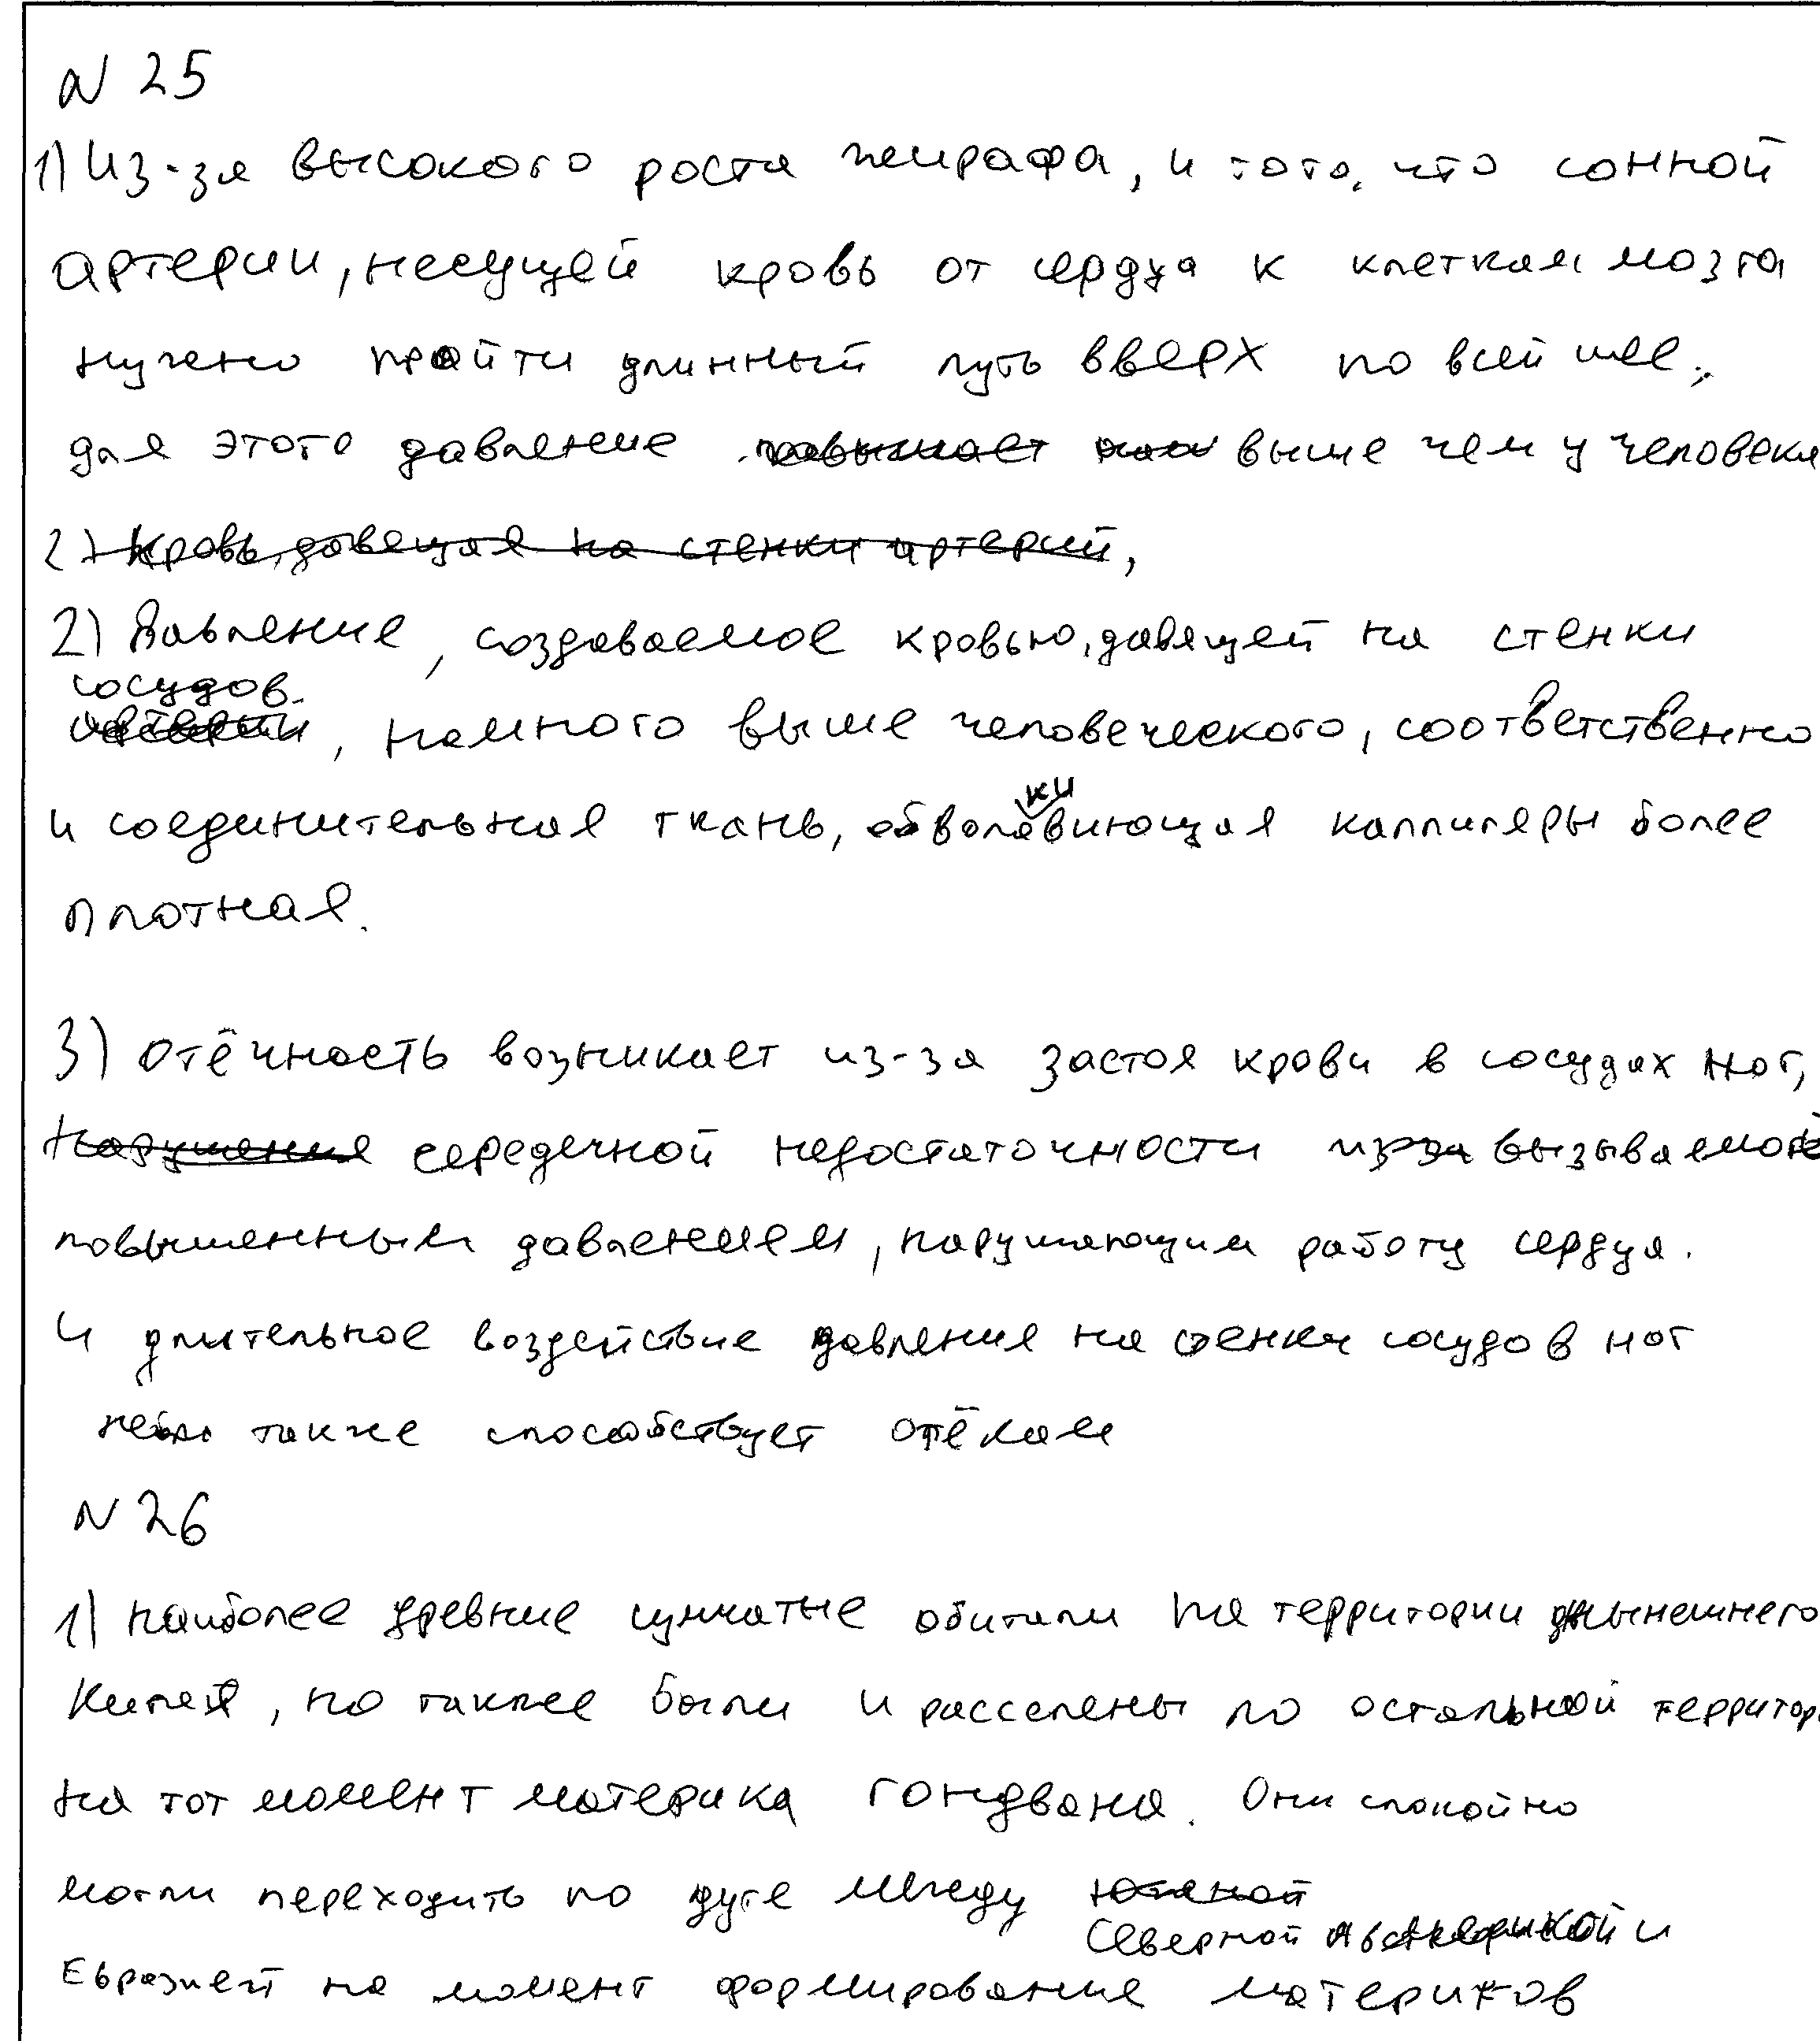 N 25
1) Из-за высокого роста жирафа, и того, что сонной
артерии, несущей кровь от сердца к клеткам мозга
нужно пройти длинный путь вверх по всей шее,
для этого давление повышает выше чем у человека
2) Кровь, давящая на стенки артерий,
2) Давление, создаваемое кровью, давящей на стенки
сосудов
артерии, намного выше человеческого, соответственно
ки
и соединительная ткань, обволавиющая каппиляры более
плотная.
3) Отёчность возникает из-за застоя крови в сосудах ног,
Нарушения середечной недостаточности из-за вызываемой
повышенным давлением, нарушающим работу сердца.
И длительное воздействие давления на стенки сосудов ног
также способствует отёкам
N 26
1) Наиболее древние сумчатые обитали на территории нынешнего
Китая, но также были и расселены по остальной территор
на тот момент материка Гондвана. Они спокойно
могли переходить по дуге между Южной
Северной Америкой и
Евразией на момент формирование материков